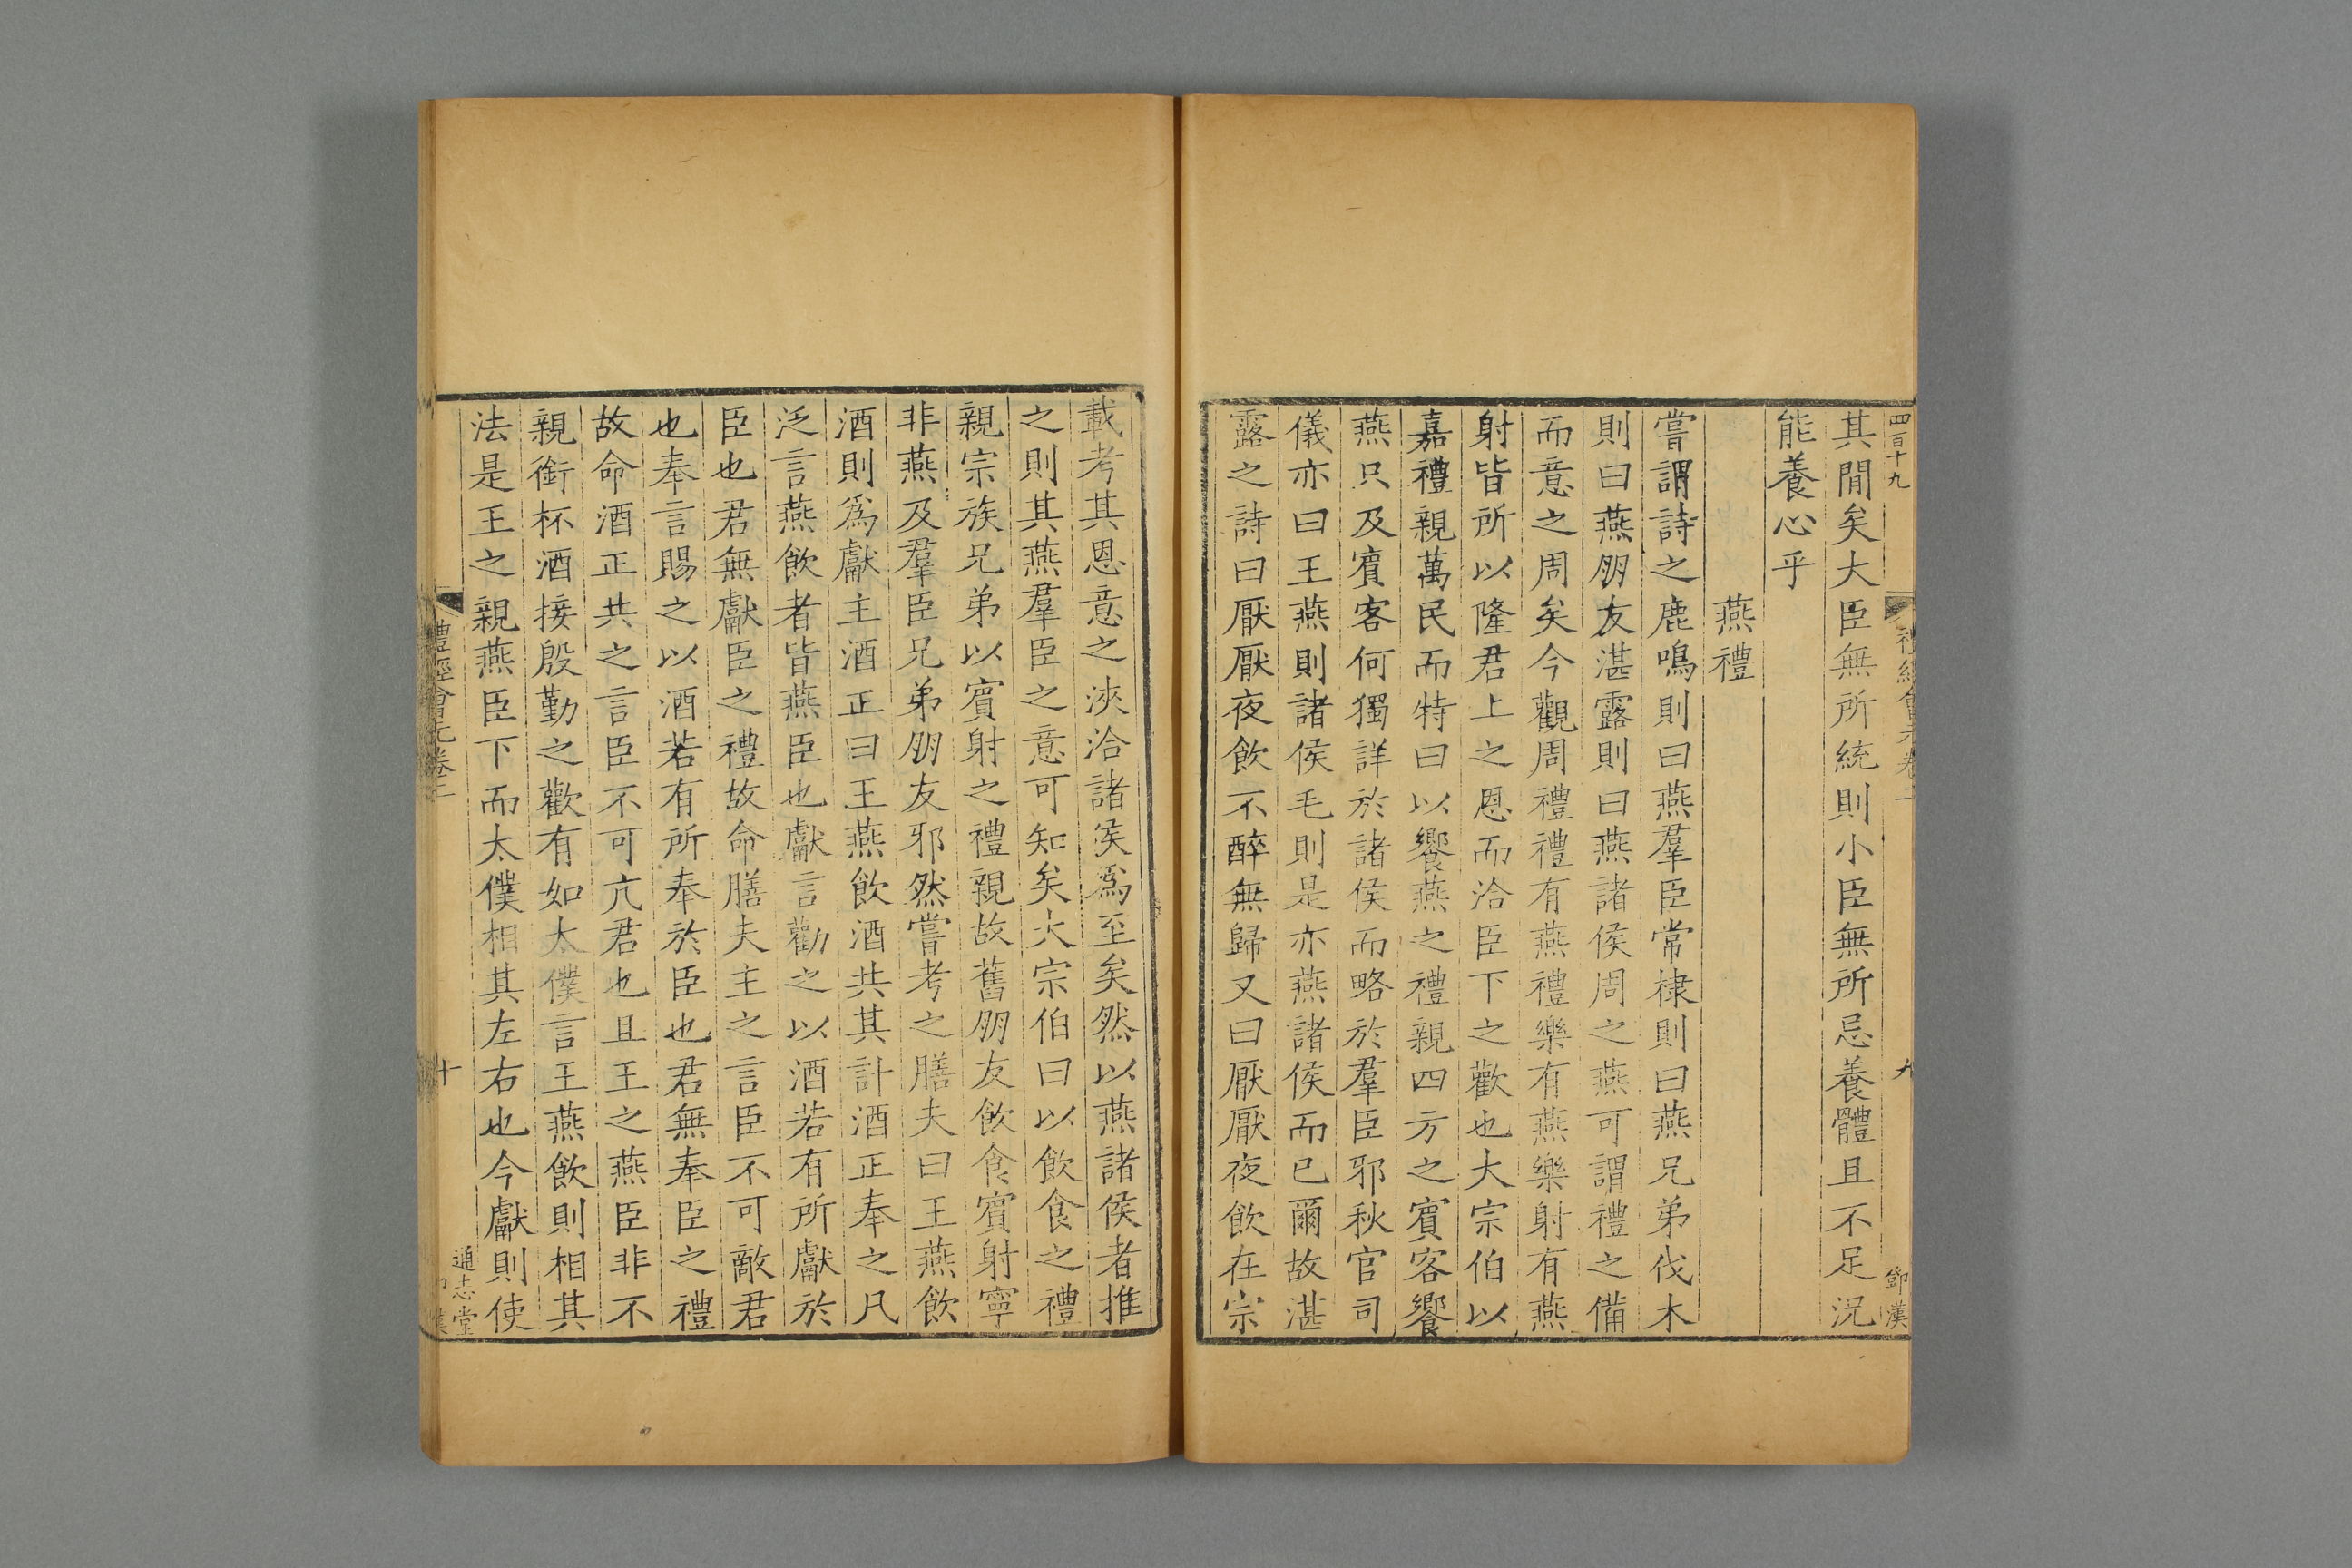 四百十九
禮經會元卷二
九
鄧漢
其閒矣大臣無所統則小臣無所忌養體且不足況
能養心乎
燕禮
嘗謂詩之鹿鳴則曰燕羣臣常棣則曰燕兄弟伐木
則曰燕朋友湛露則曰燕諸侯周之燕可謂禮之備
而意之周矣今觀周禮禮有燕禮樂有燕樂射有燕
射皆所以隆君上之恩而洽臣下之歡也大宗伯以
嘉禮親萬民而特曰以饗燕之禮親四方之賓客饗
燕只及賓客何獨詳於諸侯而略於羣臣邪秋官司
儀亦曰王燕則諸侯毛則是亦燕諸侯而已爾故湛
露之詩曰厭厭夜飲不醉無歸又曰厭厭夜飲在宗
載考其恩意之浹洽諸侯爲至矣然以燕諸侯者推
之則其燕羣臣之意可知矣大宗伯曰以飲食之禮
親宗族兄弟以賓射之禮親故舊朋友飲食賓射寧
非燕及羣臣兄弟朋友邪然嘗考之膳夫曰王燕飲
酒則爲獻主酒正曰王燕飲酒共其計酒正奉之凡
泛言燕飲者皆燕臣也獻言勸之以酒若有所獻於
臣也君無獻臣之禮故命膳夫主之言臣不可敵君
也奉言賜之以酒若有所奉於臣也君無奉臣之禮
故命酒正共之言臣不可亢君也且王之燕臣非不
親銜杯酒接殷勤之歡有如太僕言王燕飲則相其
法是王之親燕臣下而太僕相其左右也今獻則使
禮經會元卷二
十
通志堂